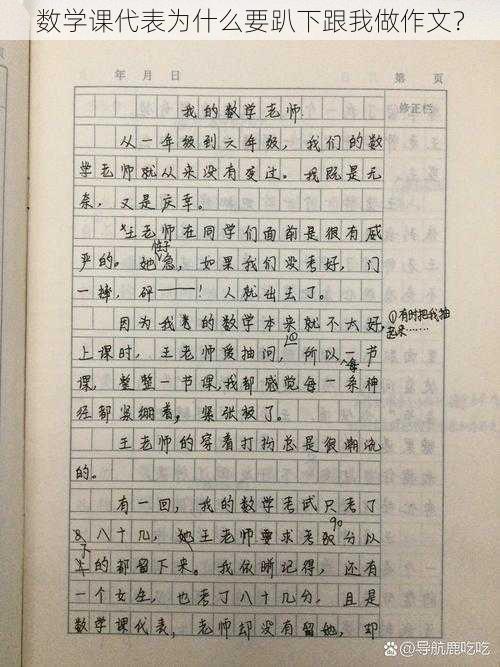 数学课代表为什么要趴下跟我做作文？
年 月 日
第 页
修正栏
我的数学老师
从一年级到六年级，我们的数
学老师就从来没有变过。我既是无
奈，又是庆幸。
王老师在同学们面前是很有威
严的。她性子急，如果我们没考好，门
一摔，砰——！人就出去了。
因为我的数学本来就不太好，
①有时把我抽
起来……
上课时，王老师爱抽问，①所以每一节
课，整整一节课，我都感觉每一条神
经都紧绷着，紧张极了。
王老师的穿着打扮总是很潮流
的。
有一回，我的数学考试只考了
八十几，王老师要求考90分以
下的都留下来。我依晰记得，还有
一个女生，也考了八十几分，且是
数学课代表，老师却没有留她，却
头条@导航鹿吃吃